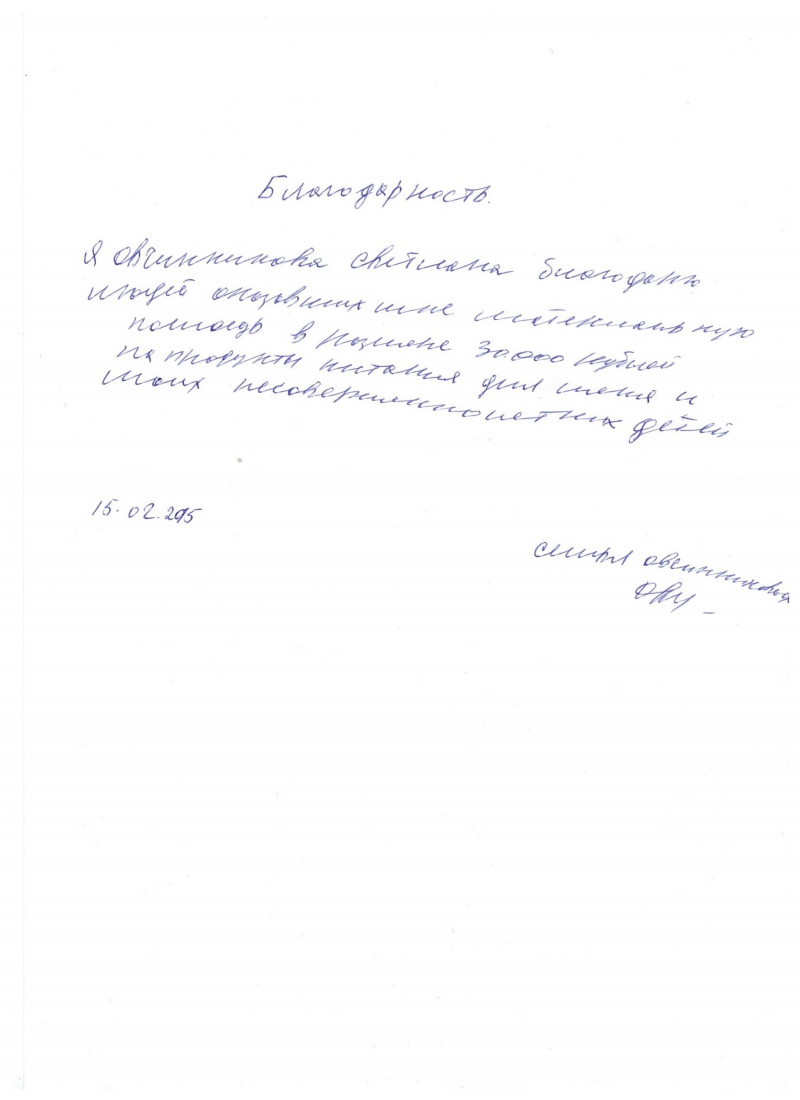 Благодарность.
Я Овчинникова Светлана благодарю
людей оказавших мне материальную
помощь в размере 30.000 рублей
на продукты питания для меня и
моих несовершеннолетних детей
15.02.2015
семья Овчинниковых